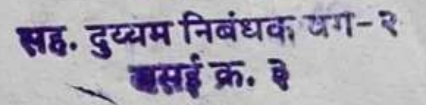 सह. दुय्यम निबंधक वग-२
बसई क्र. ३